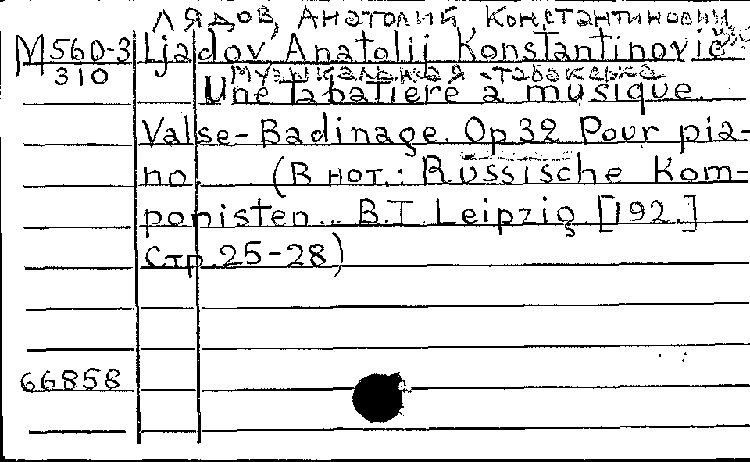 Лядов, Анатолий Константинович
М560-3 Ljadov Anatolij Konstantinovič
310 Музыкальная табакерка
Une tabatière à musique.
Valse-Badinage. Op.32 Pour pia-
no. (В нот.: Russische Kom-
ponisten... B.T. Leipzig, [192.]
Стр. 25-28)
66858